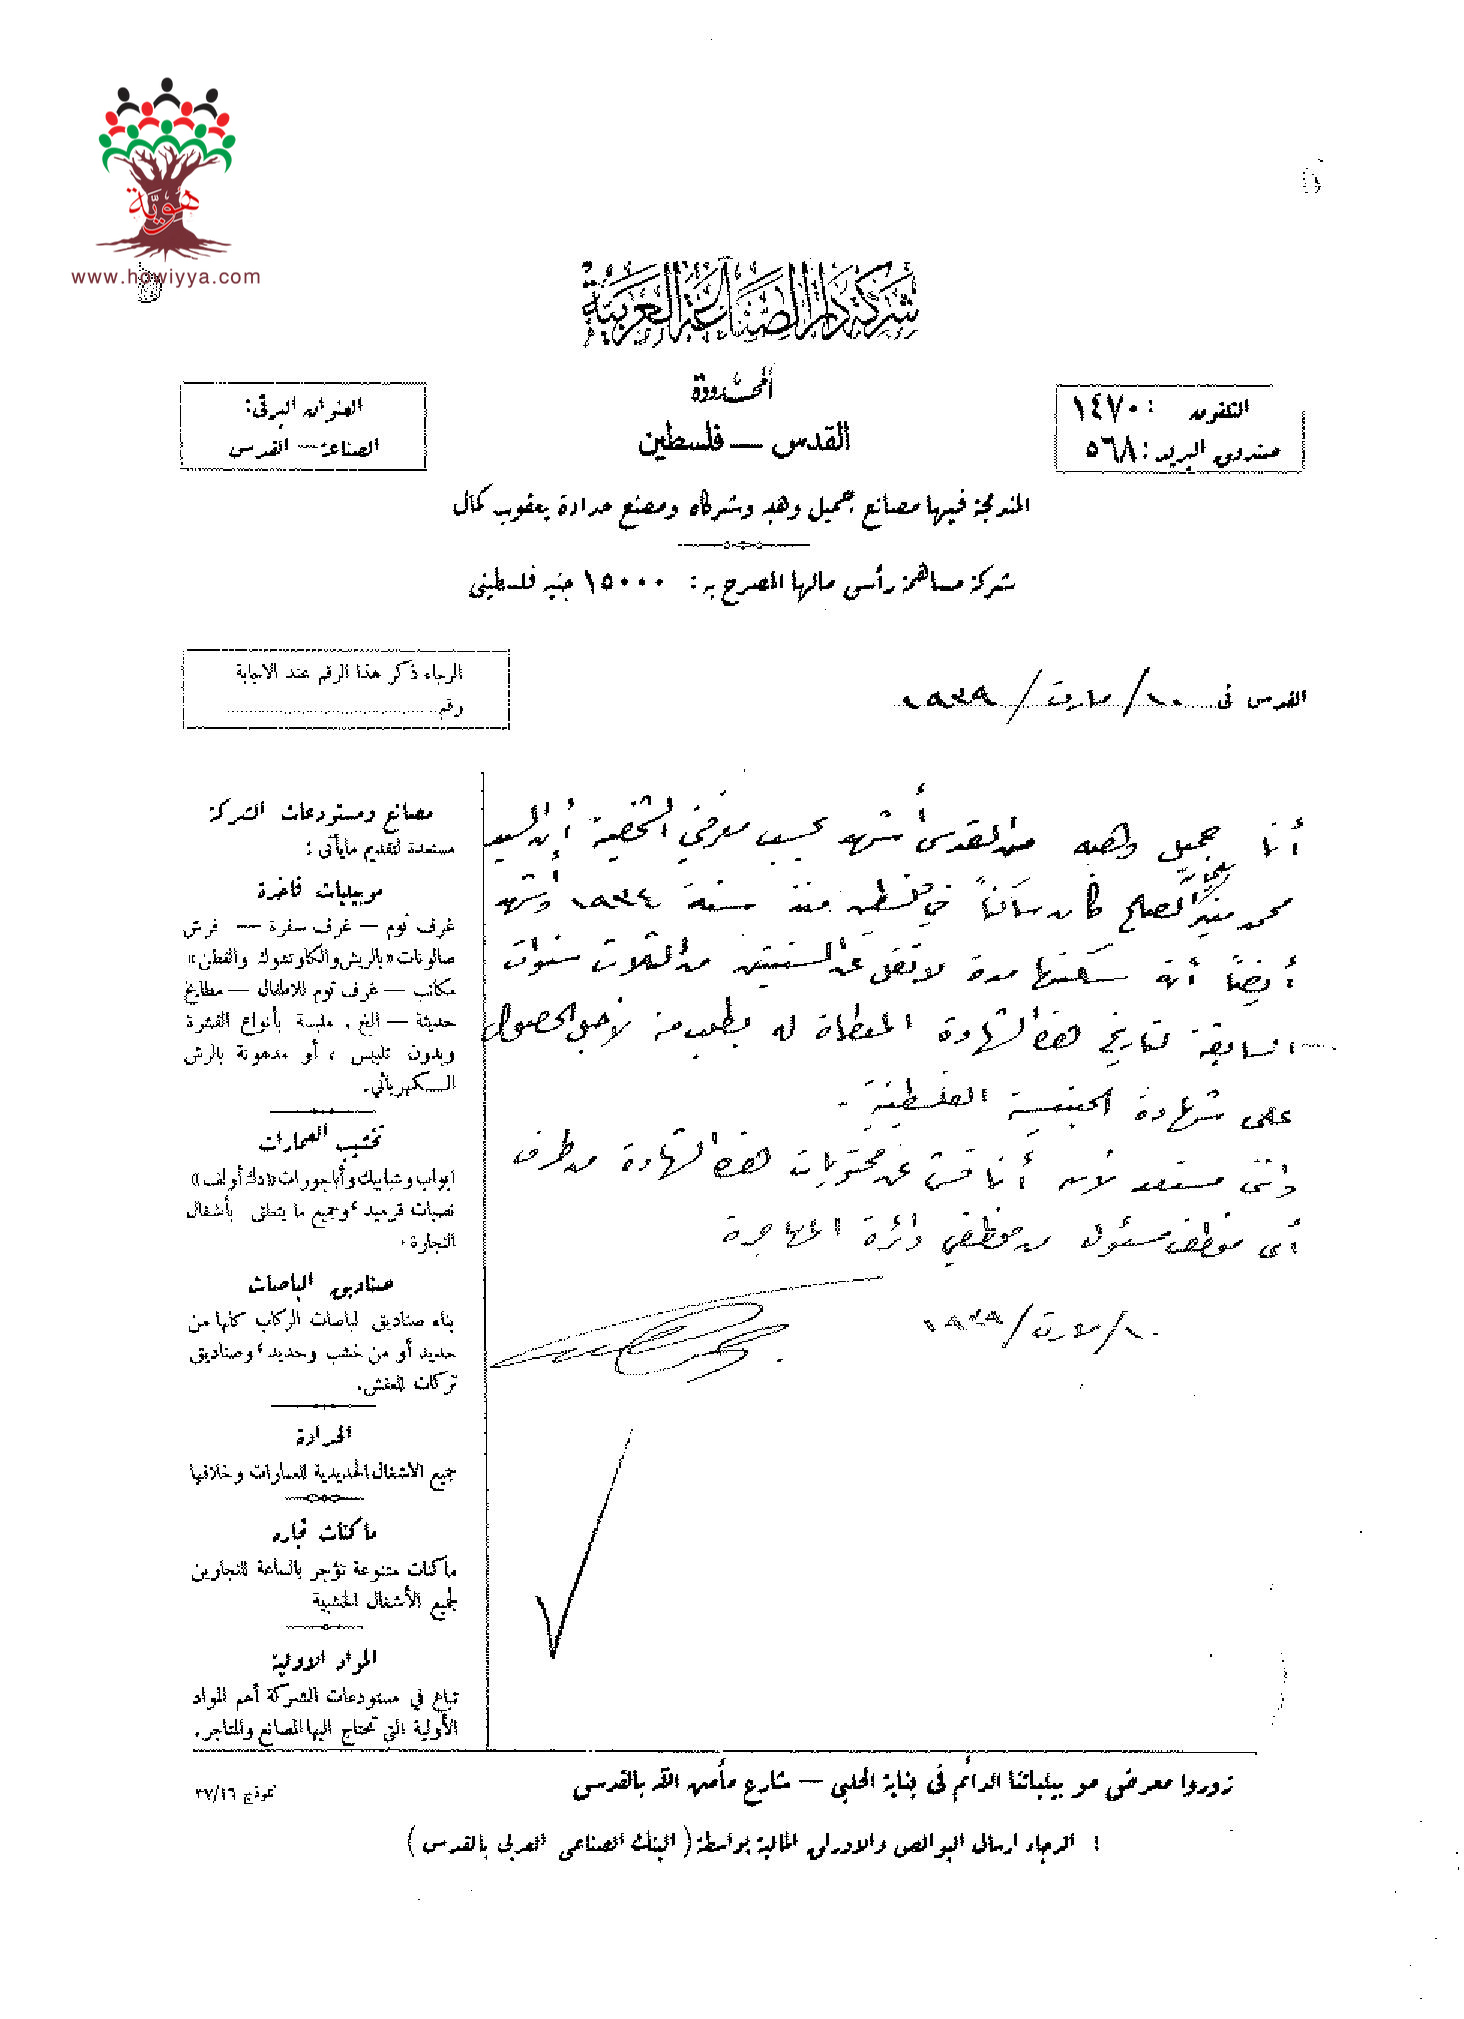 هوية
www.howiyya.com
شركة دار الصناعة العربية
المحدودة
القدس — فلسطين
التلفون : ١٤٧٠
صندوق البريد : ٥٦٨
العنوان البرقي :
الصناعة — القدس
المندمجة فيها مصانع جميل وهبه وشركاه ومصنع حدادة يعقوب كمال
شركة مساهمة رأس مالها المصرح به : ١٥٠٠٠ جنيه فلسطيني
الرجاء ذكر هذا الرقم عند الاجابة
رقم
القدس في ١٠/ مارت / ١٩٣٩
أنا جميل وهبه من القدس أشهد بحسب معرفتي الشخصية أن السيد
محمد منير الصلح كان ساكناً في فلسطين منذ سنة ١٩٣٤ وأشهد
أيضاً أنه سكنها مدة لا تقل عن السنتين من الثلاث سنوات
السابقة لتاريخ هذه الشهادة المعطاة له بطلب منه لأجل الحصول
على شهادة الجنسية الفلسطينية .
وانني مستعد لأن أناقش عن محتويات هذه الشهادة من طرف
أي موظف مسئول من موظفي دائرة المهاجرة
١٠/ مارت / ١٩٣٩
مصانع ومستودعات الشركة
مستعدة لتقديم ما يأتي :
موبيليات فاخرة
غرف نوم — غرف سفرة — فرش
صالونات «بالريش والكاوتشوك والقطن»
مكاتب — غرف نوم للاطفال — مطابخ
حديثة — الخ . ملبسة بأنواع القشرة
وبدون تلبيس ، أو مدهونة بالرش
الكهربائي.
تخشيب العمارات
ابواب وشبابيك وأباجورات «دك أولف»
نصبات قرميد ، وجميع ما يتعلق بأشغال
النجارة .
صناديق الباصات
بناء صناديق لباصات الركاب كلها من
حديد أو من خشب وحديد ، وصناديق
تركات للعفش.
الحدادة
جميع الاشغال الحديدية للعمارات وخلافها
ماكنات نجارة
ماكنات متنوعة تؤجر بالساعة للنجارين
لجميع الأشغال الخشبية
المواد الاولية
تباع في مستودعات الشركة أهم المواد
الأولية التي تحتاج اليها المصانع والمتاجر.
زوروا معرض موبيلياتنا الدائم في بناية الحلبي — شارع مأمن الله بالقدس
نموذج ٣٧/١٦
الرجاء ارسال البوالص والاوراق المالية بواسطة ( البنك الصناعي العربي بالقدس )